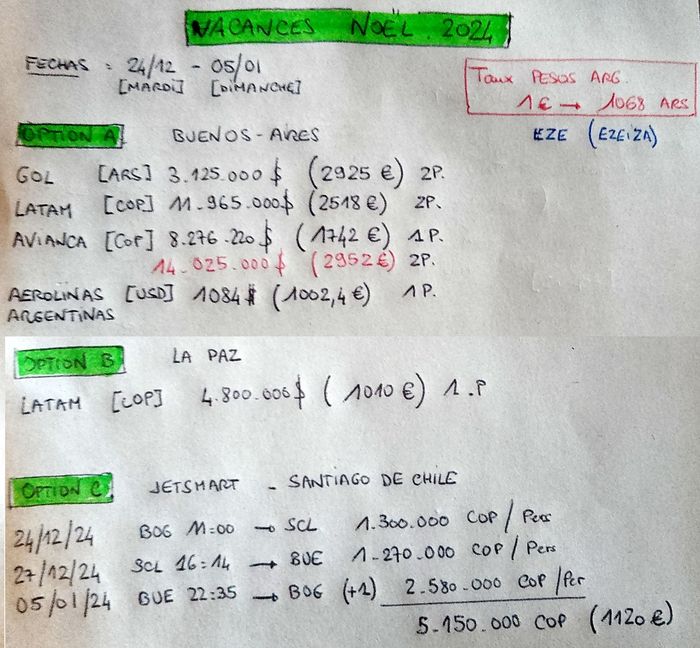 VACANCES NOËL 2024
FECHAS : 24/12 - 05/01
[MARDI] [DIMANCHE]
Taux PESOS ARG.
1€ → 1068 ARS
EZE (EZEIZA)
OPTION A BUENOS-AIRES
GOL [ARS] 3.125.000 $ (2925 €) 2P.
LATAM [COP] 11.965.000$ (2518€) 2P.
AVIANCA [COP] 8.276.220 $ (1742 €) 1P.
14.025.000$ (2952€) 2P.
AEROLINAS [USD] 1084$ (1002,4€) 1P.
ARGENTINAS
OPTION B LA PAZ
LATAM [COP] 4.800.006$ (1010€) 1.P
OPTION C JETSMART - SANTIAGO DE CHILE
24/12/24 BOG 11:00 → SCL 1.300.000 COP / Pers
27/12/24 SCL 16:14 → BUE 1-270.000 COP / Pers
05/01/24 BUE 22:35 → BOG (+1) 2.580.000 COP /Per
5.150.000 COP (1120€)